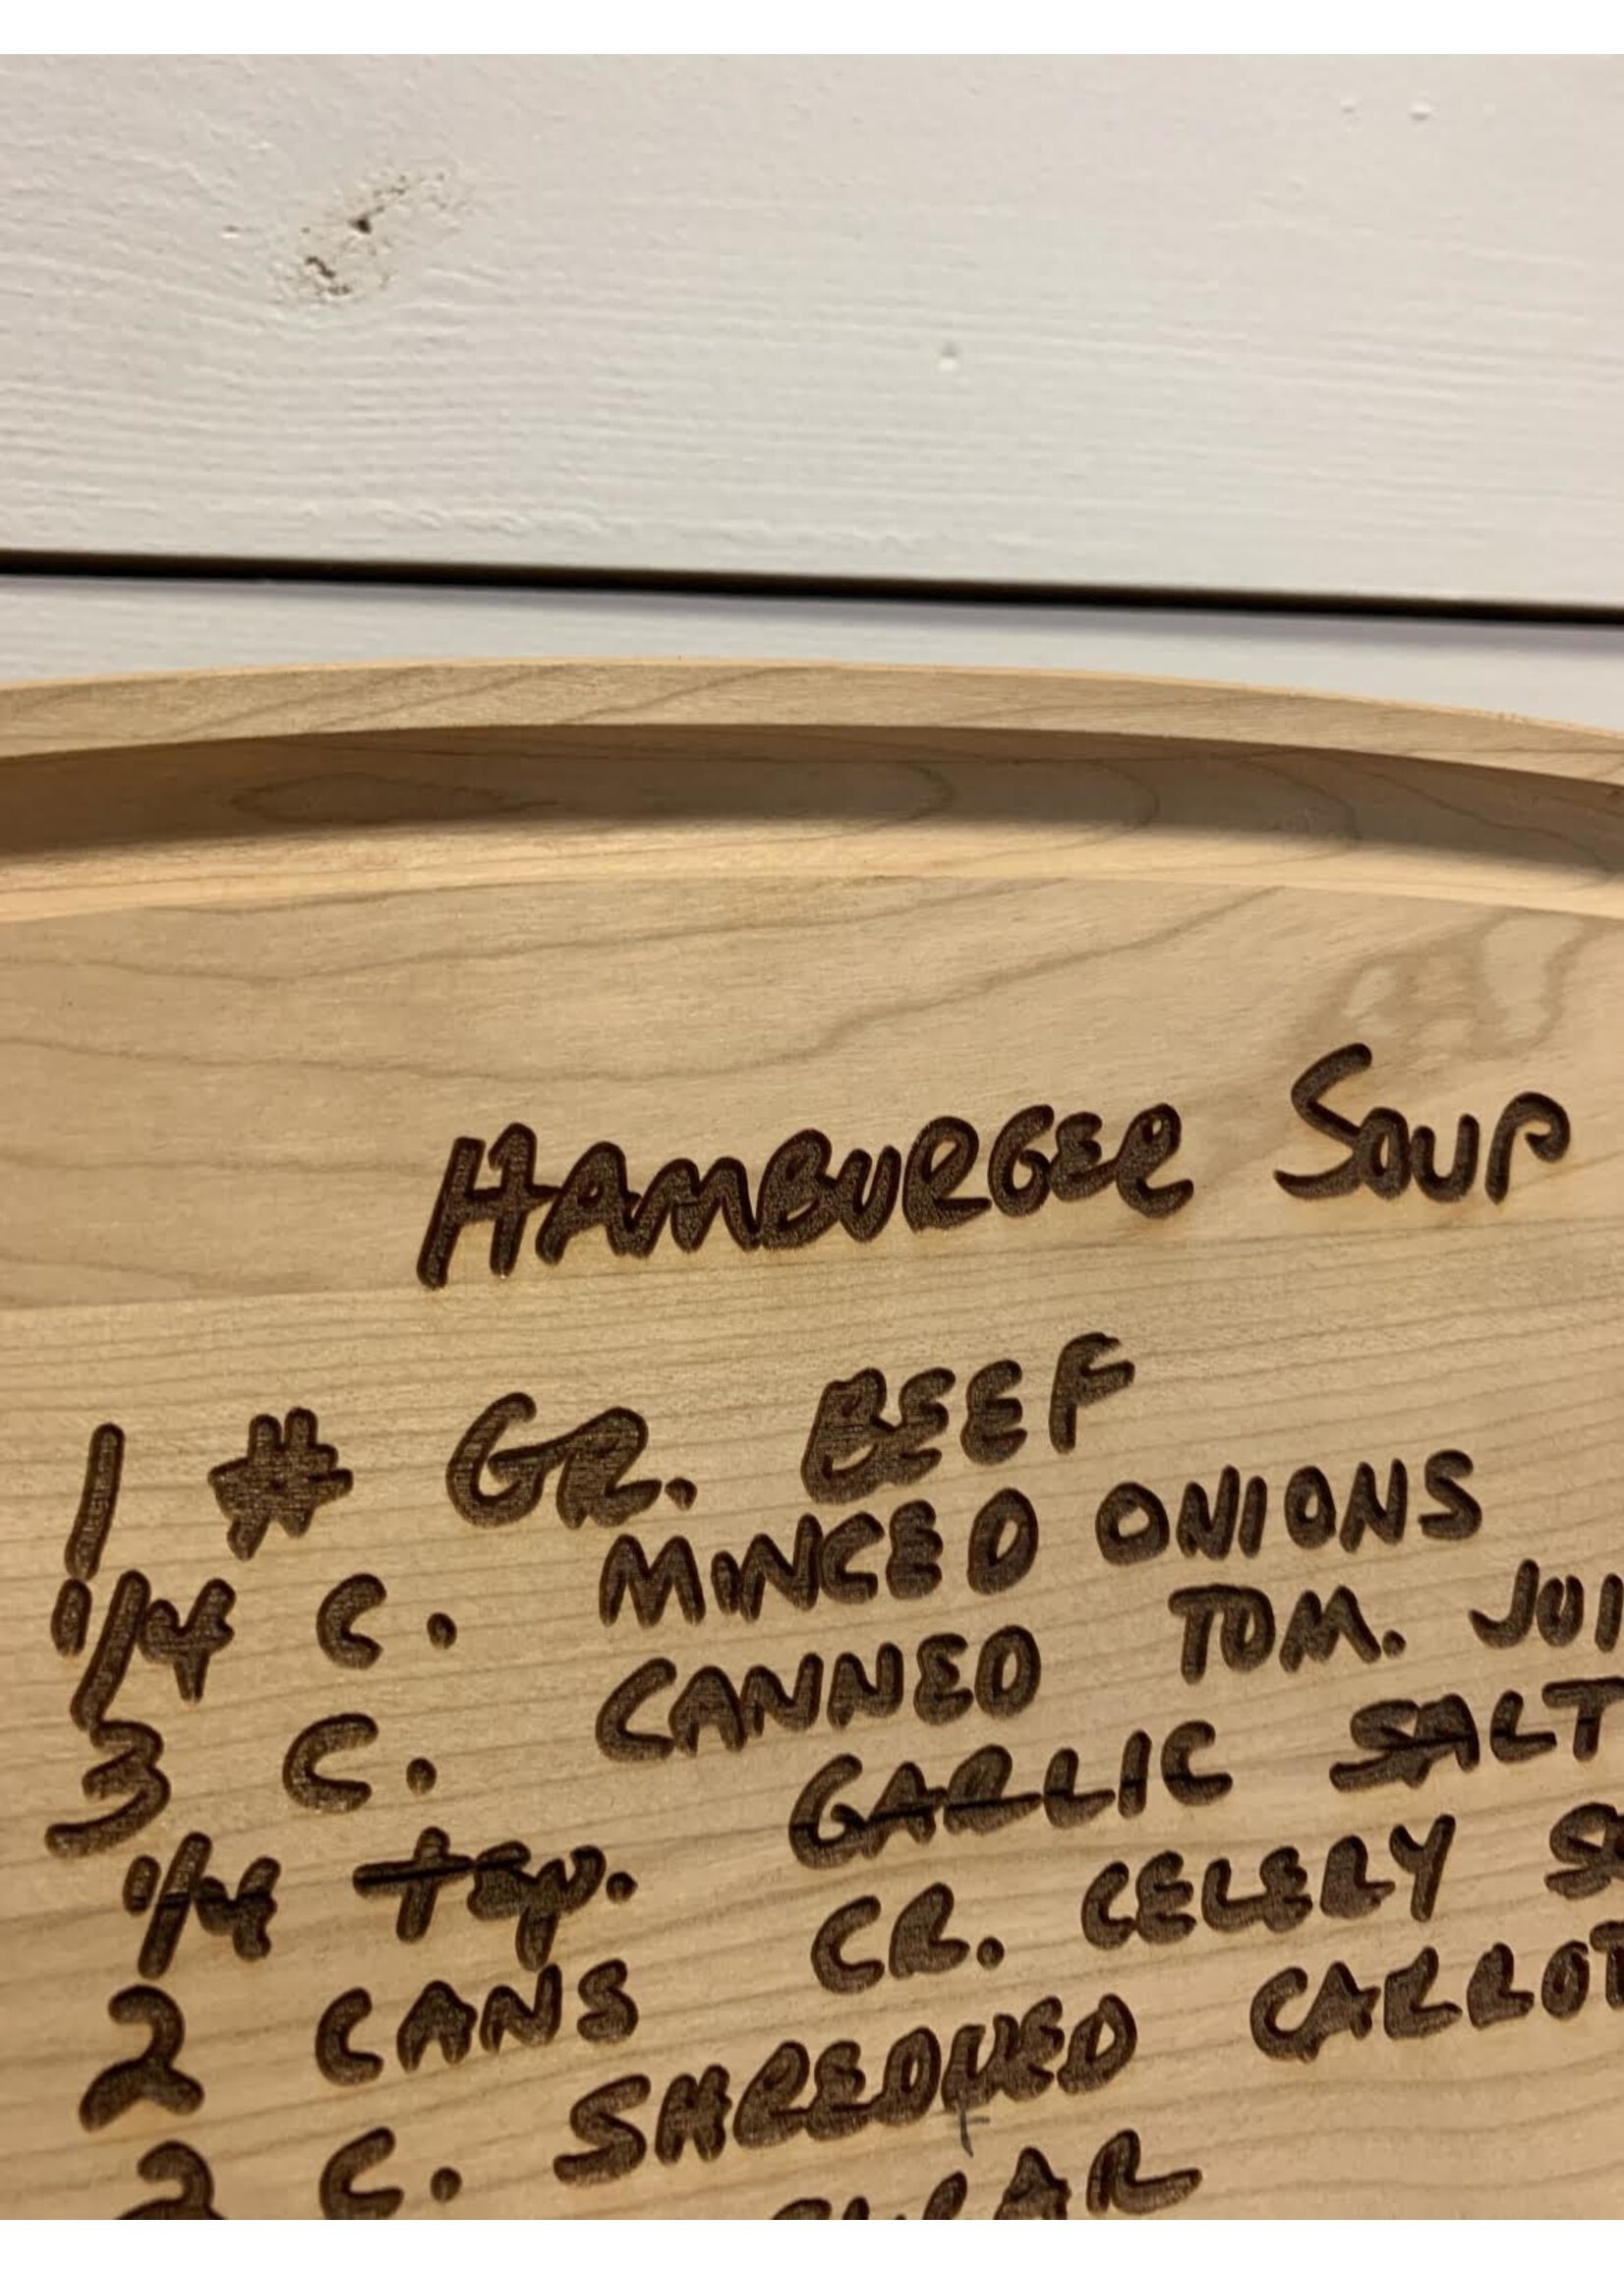 HAMBURGER SOUP
1 # GR. BEEF
1/4 C. MINCED ONIONS
3 C. CANNED TOM. JUI
1/4 tsp. GARLIC SALT
2 CANS CR. CELERY S
2 C. SHREDDED CARROT